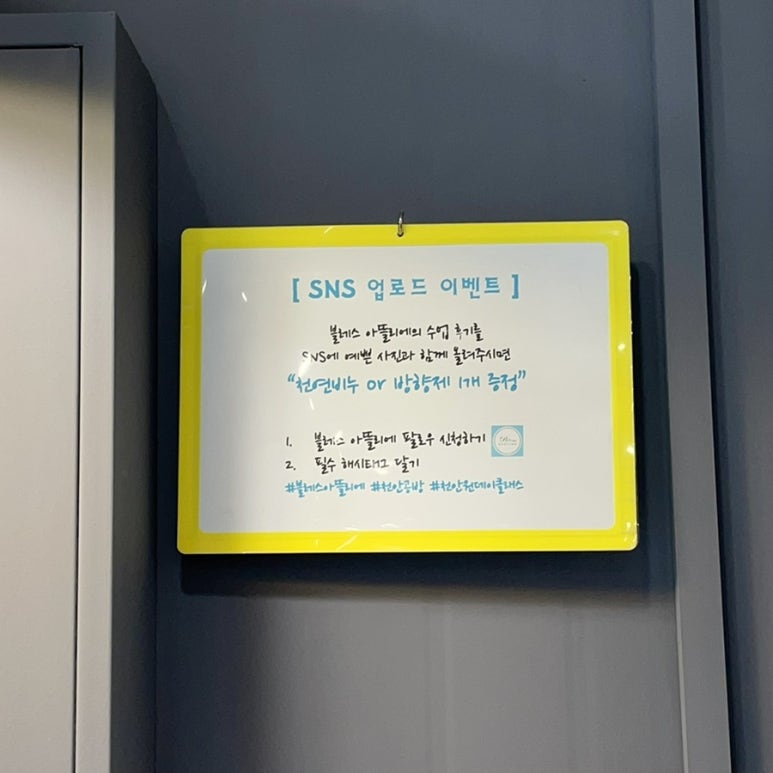 [ SNS 업로드 이벤트 ]
블레스 아뜰리에의 수업 후기를
SNS에 예쁜 사진과 함께 올려주시면
“천연비누 or 방향제 1개 증정”
1. 블레스 아뜰리에 팔로우 신청하기
2. 필수 해시태그 달기
#블레스아뜰리에 #천안공방 #천안원데이클래스